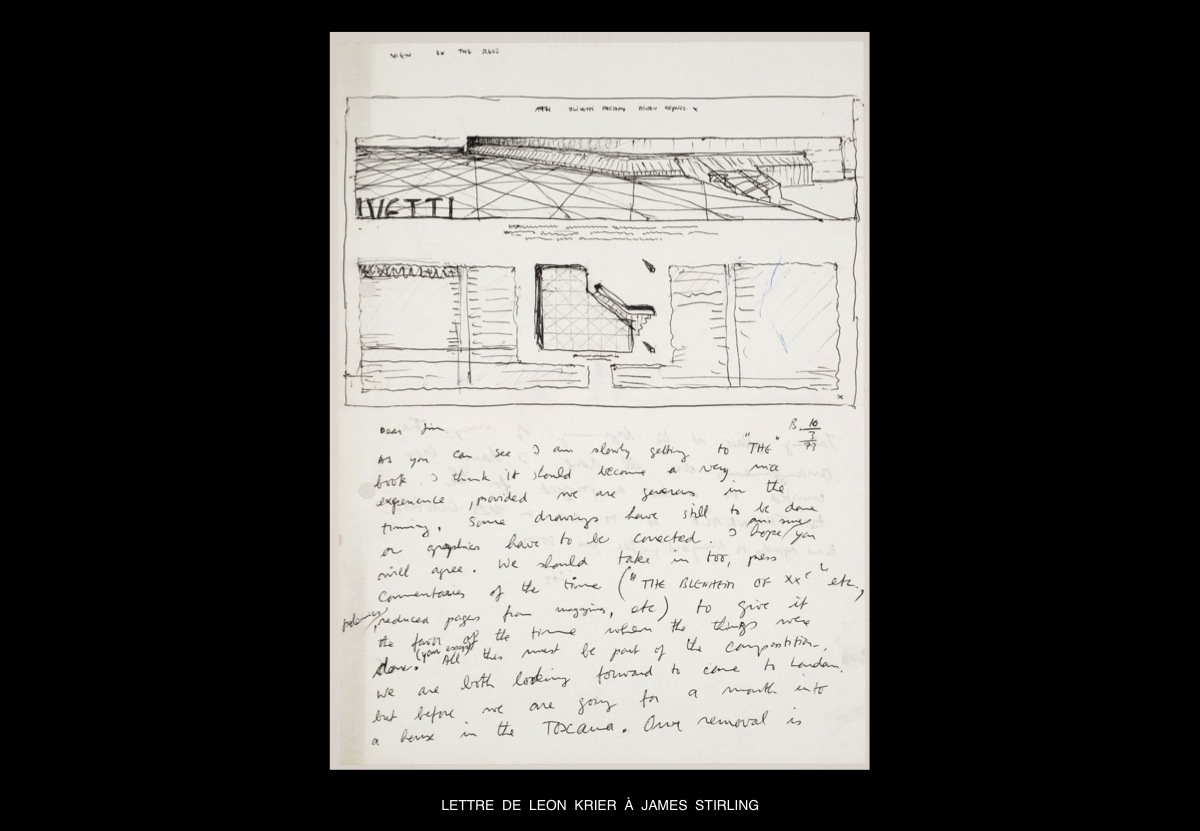 VIEW IN THE
OLIVETTI FACTORY MILTON KEYNES. x
IVETTI
x
Dear Jim
B. 10/3/73
As you can see I am slowly getting to "THE"
book. I think it should become a very nice
experience, provided we are generous in the
timing. Some drawings have still to be done
or graphics have to be corected. I hope/ you
am sure
will agree. We should take in too, press
Commentaries of the time ("THE BLENHEIM OF XXc" etc,
polemics/, reduced pages from magazines, etc) to give it
the favor of the time when the things were
done. (your essays) All this must be part of the composition.
We are both looking forward to come to London.
but before we are going for a month into
a house in the TOSCana. Our removal is
LETTRE DE LEON KRIER À JAMES STIRLING